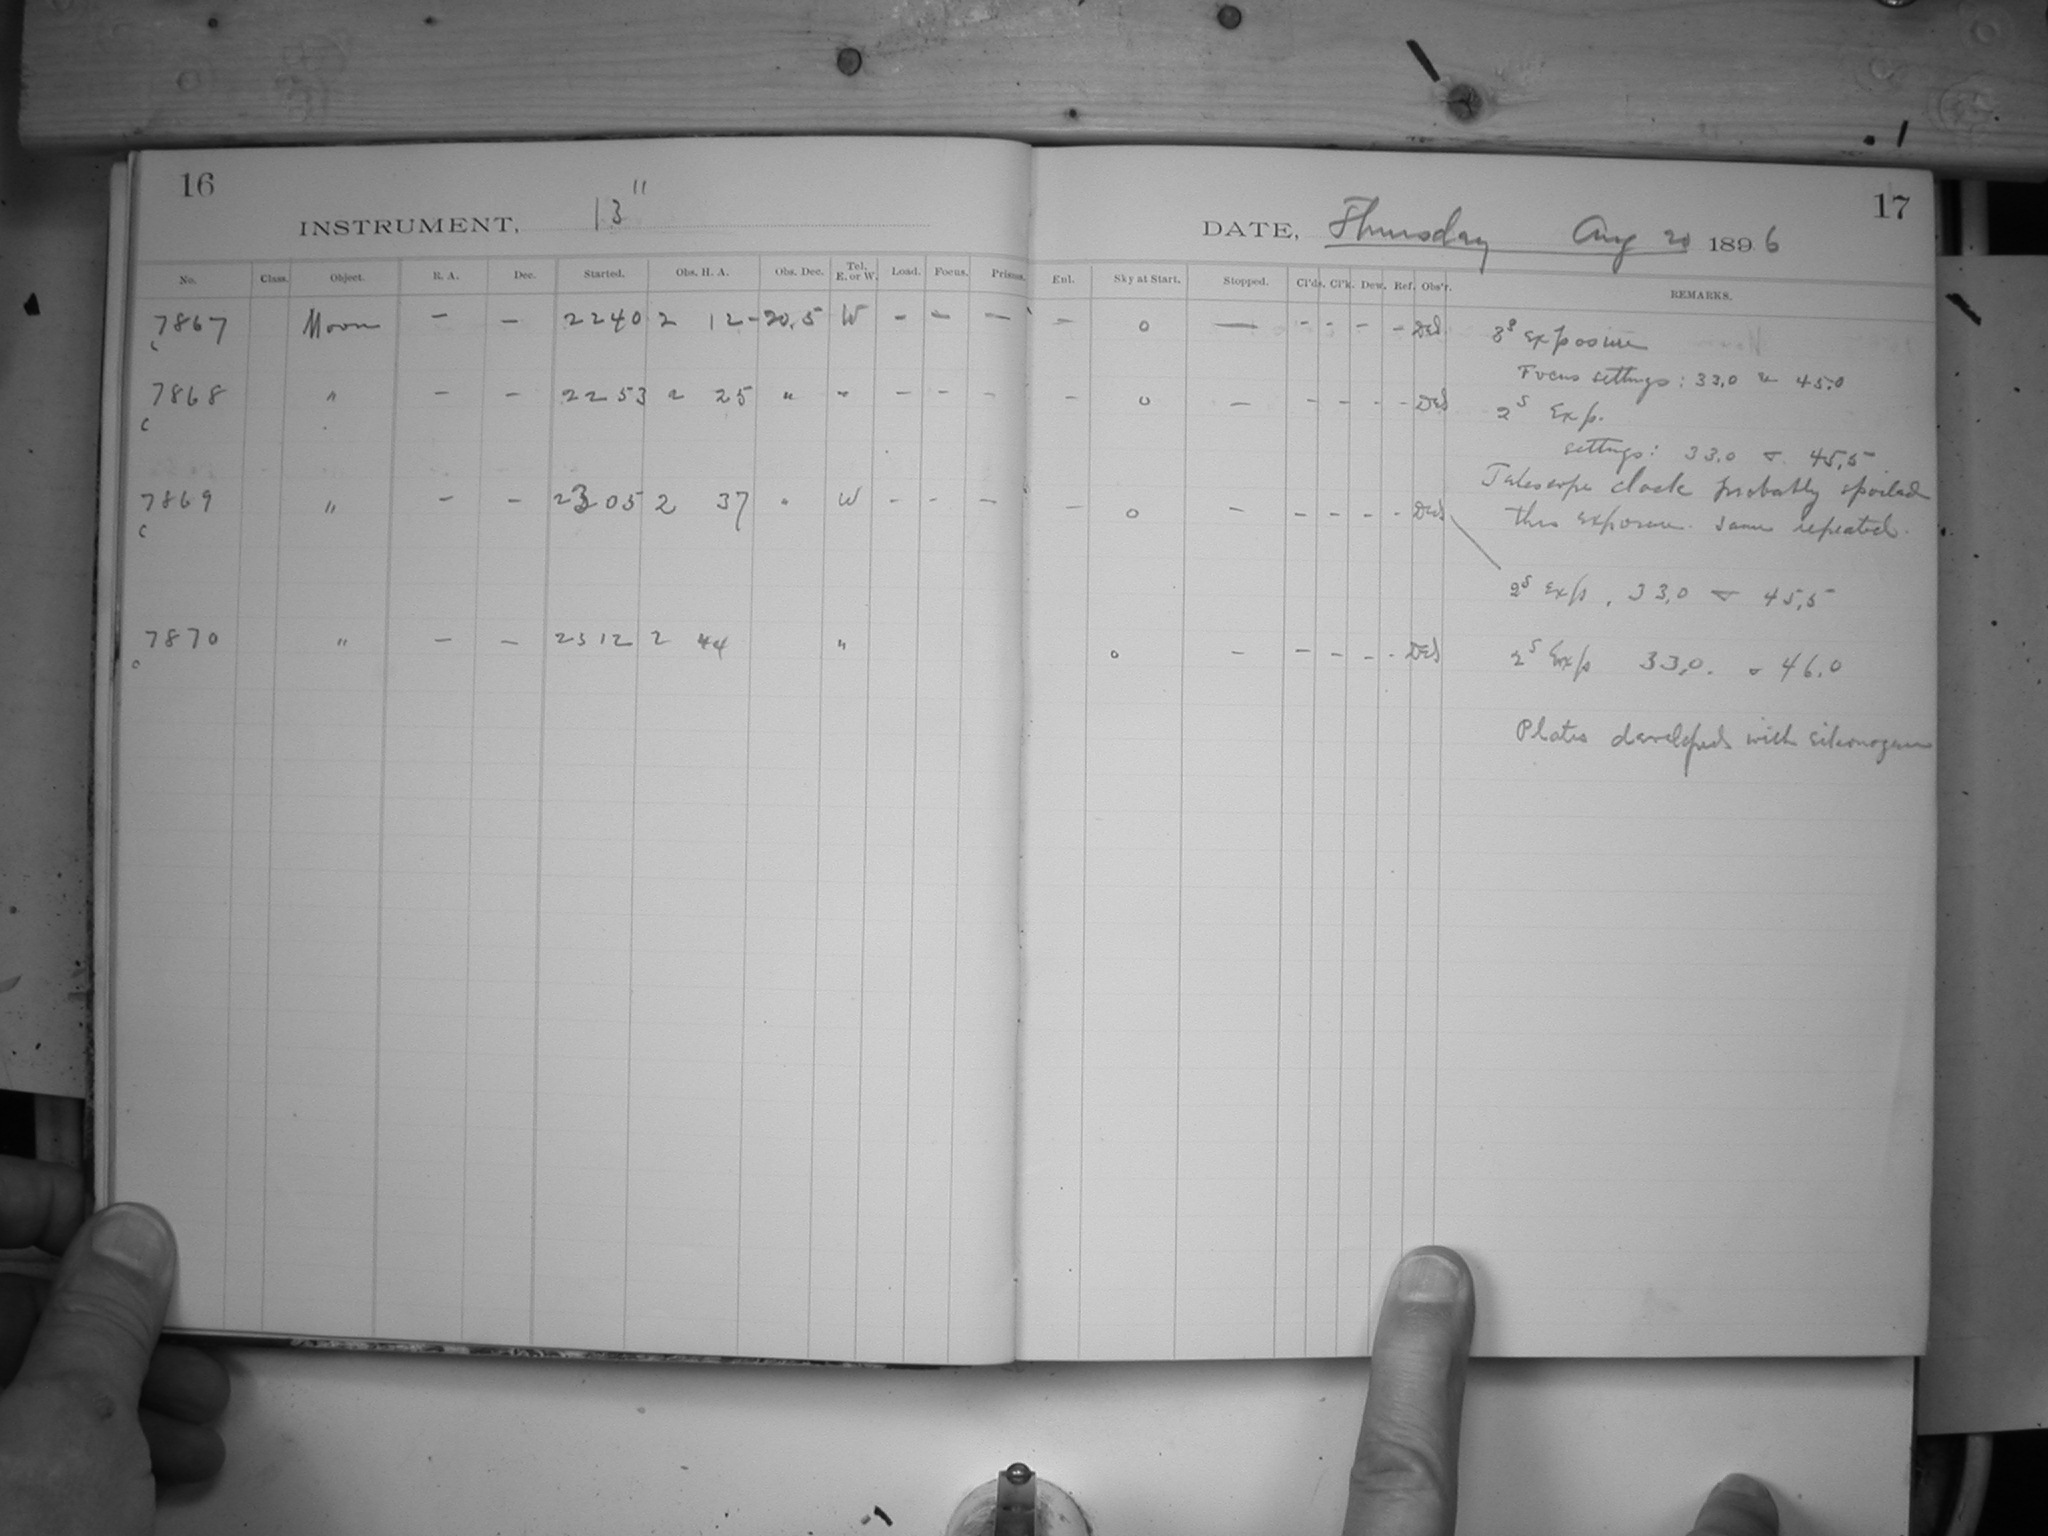 16
INSTRUMENT, 13"
No. Class. Object. R. A. Dec. Started. Obs. H. A. Obs. Dec. Tel. E. or W. Load. Focus. Prisms.
7867 Moon - - 2240 2 12 -20.5 W - - -
c
7868 " - - 2253 2 25 " " - - -
c
7869 " - - 2305 2 37 " W - - -
c
7870 " - - 2312 2 44 "
17
DATE, Thursday Aug 20 1896
Enl. Sky at Start. Stopped. Cl'ds. Cl'k. Dew. Ref. Obs'r. REMARKS.
- 0 - - - - - DES 3s Exposure
Focus settings: 33.0 & 45.0
- 0 - - - - - DES 2s Exp.
settings: 33.0 & 45.5
Telescope clock probably spoiled
- 0 - - - - - DES this exposure. Same repeated.
2s Exp. 33.0 & 45.5
0 - - - - - DES 2s Exp 33.0. & 46.0
Plates developed with eikonogen